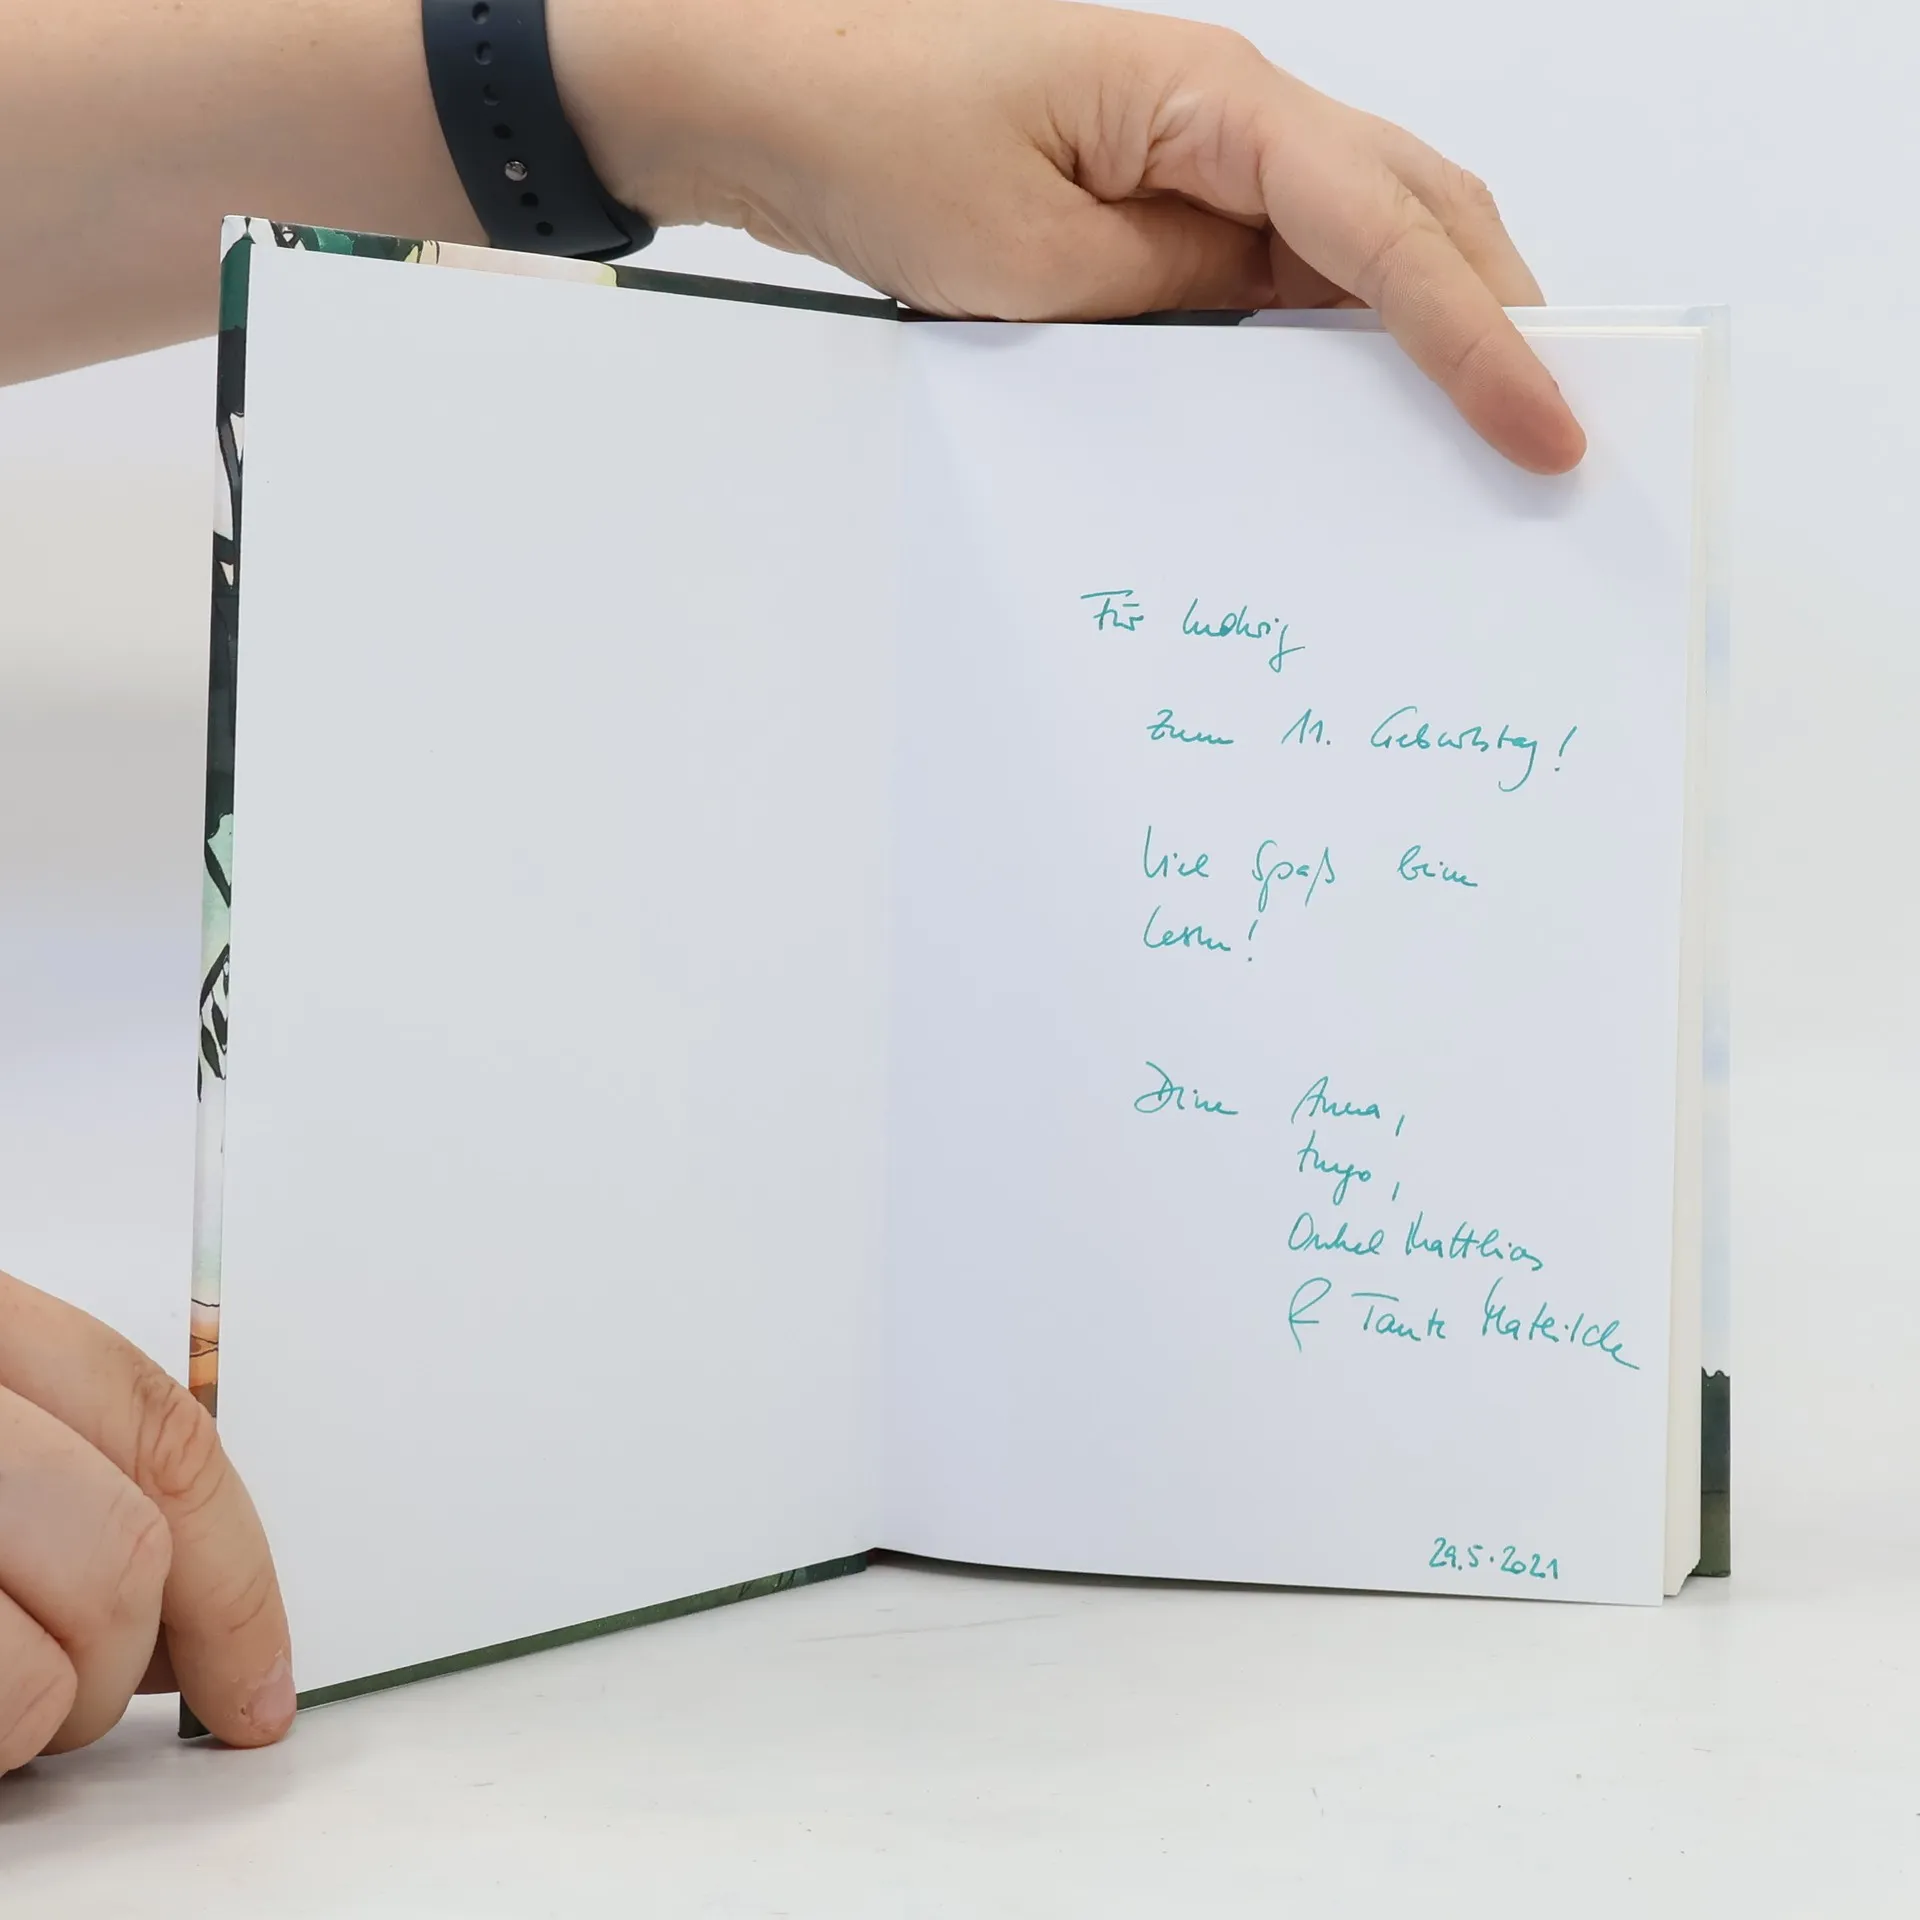 Für Ludwig
zum 11. Geburtstag!
Viel Spaß beim
Lesen!
Deine Anna,
Hugo,
Onkel Matthias
& Tante Mathilde
29.5.2021